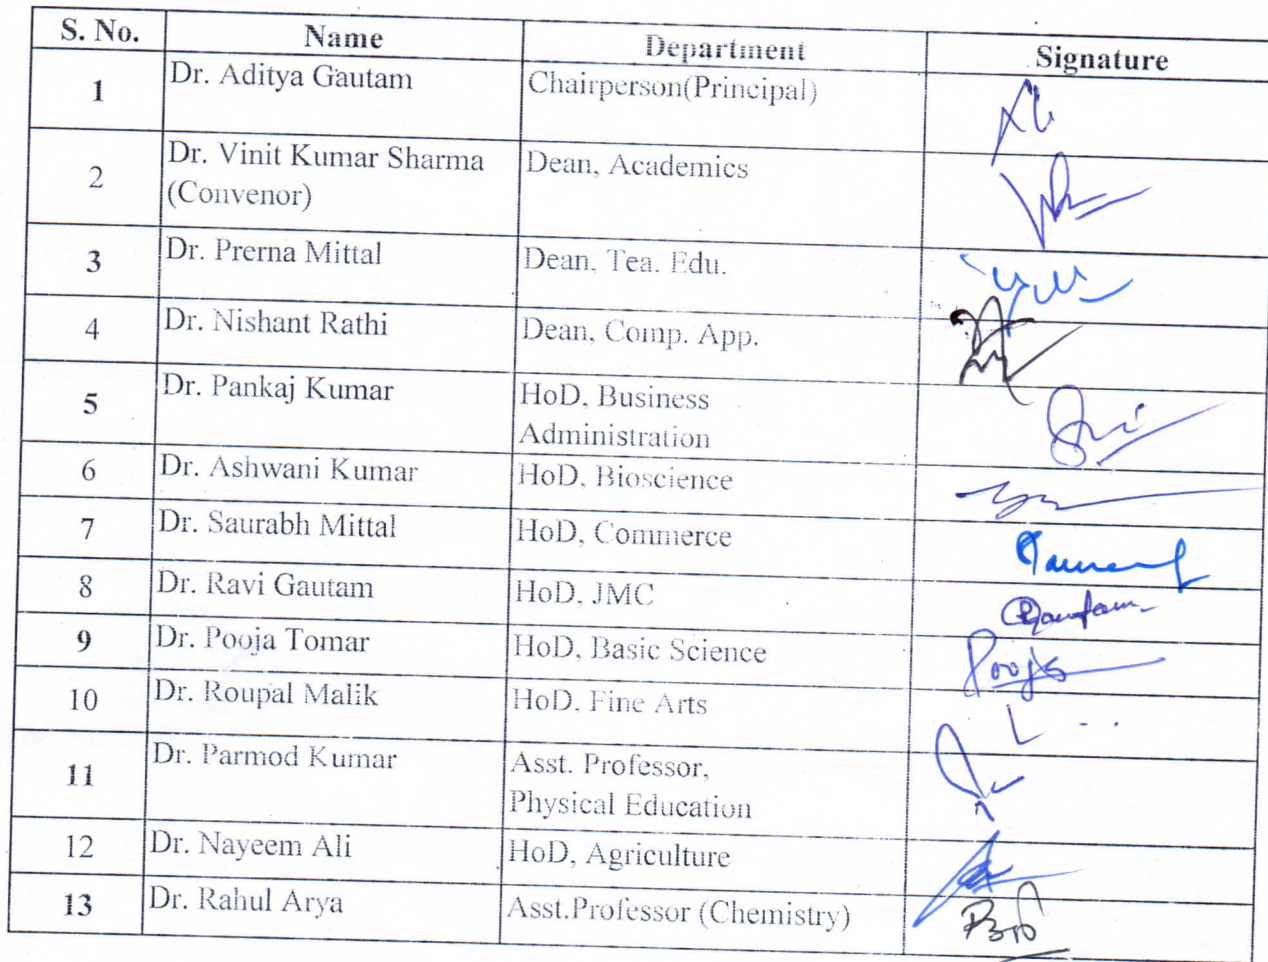 S. No. Name Department Signature
1 Dr. Aditya Gautam Chairperson(Principal)
2 Dr. Vinit Kumar Sharma Dean, Academics
(Convenor)
3 Dr. Prerna Mittal Dean, Tea. Edu.
4 Dr. Nishant Rathi Dean, Comp. App.
5 Dr. Pankaj Kumar HoD, Business
Administration
6 Dr. Ashwani Kumar HoD, Bioscience
7 Dr. Saurabh Mittal HoD, Commerce
8 Dr. Ravi Gautam HoD, JMC
9 Dr. Pooja Tomar HoD, Basic Science
10 Dr. Roupal Malik HoD, Fine Arts
11 Dr. Parmod Kumar Asst. Professor,
Physical Education
12 Dr. Nayeem Ali HoD, Agriculture
13 Dr. Rahul Arya Asst.Professor (Chemistry)